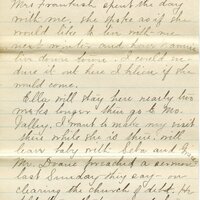 Mrs Frantish spent the day
with me, she spoke as if she
would like to live with me
next winter and have some
live down town. I could en-
dure it out here I believe if she
would come.
Ella will stay here nearly two
weeks longer then go to Mo.
Valley. I want to make my visit
there while she is there, will
leave baby with Seba and
Mr. Drane preached a sermon
last Sunday they say - on
clearing the church of debt. He